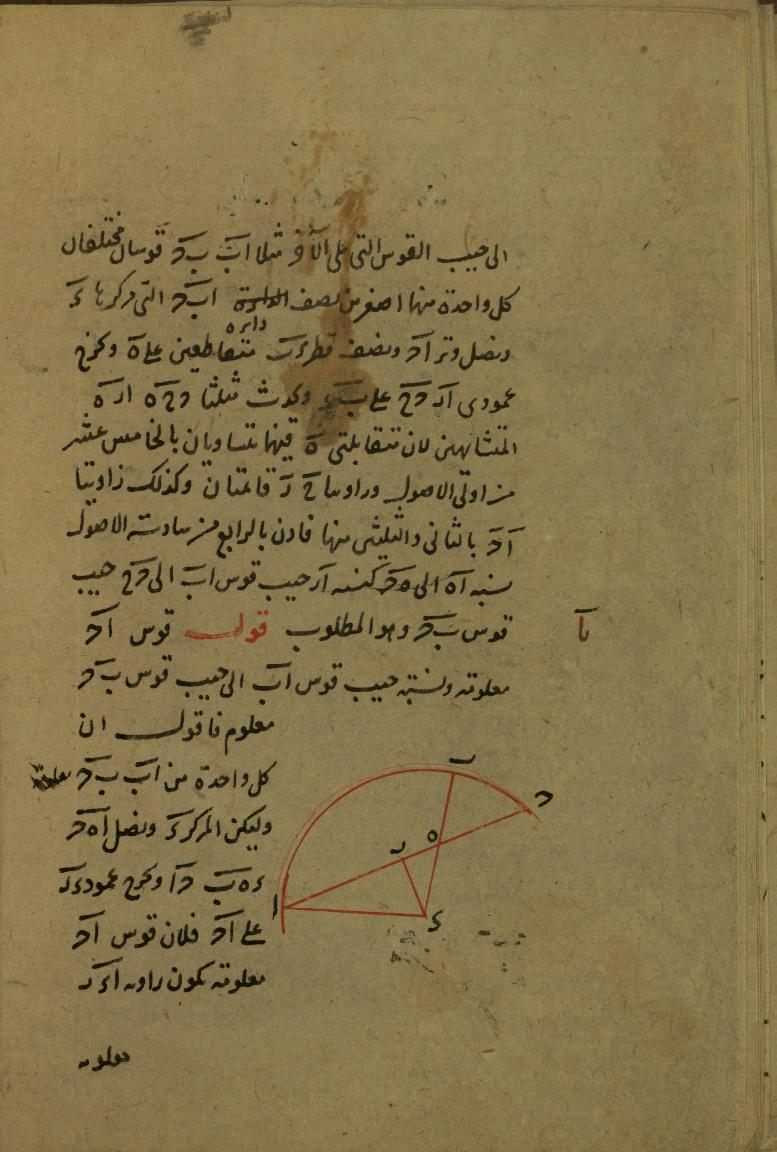 الى جيب القوس التى على الآخر مثلا اب ب ح قوسان مختلفان
كل واحدة منها اصغر من نصف اب ح التى مركزها ء
دائرة
ونصل وتر ا ح ونصف قطر ء ب متقاطعين على ه ونخرج
عمودى ا ر ح ح على ب ء ويحدث مثلثا ح ح ه ا ر ه
المتشابهين لان متقابلتى ه فيهما متساويان بالخامس عشر
من اولى الاصول وزاويتا ح ر قائمتان وكذلك زاويتا
ا ح بالثانى والثلثين منها فاذن بالرابع من سادسة الاصول
نسبة ا ه الى ه ح كنسبة ا ر جيب قوس ا ب الى ح ح جيب
قوس ب ح وهو المطلوب قول قوس ا ح
يا
معلومة ونسبة جيب قوس ا ب الى جيب قوس ب ح
معلوم فاقول ان
كل واحدة من ا ب ب ح معلومة
وليكن المركز ء ونصل ا ه ح
ء ه ب ء ا ونخرج عمود ء ر
على ا ح فلان قوس ا ح
معلومة يكون زاوية ا ء ر
معلومة
ب
ح
ه
ر
ا
ء